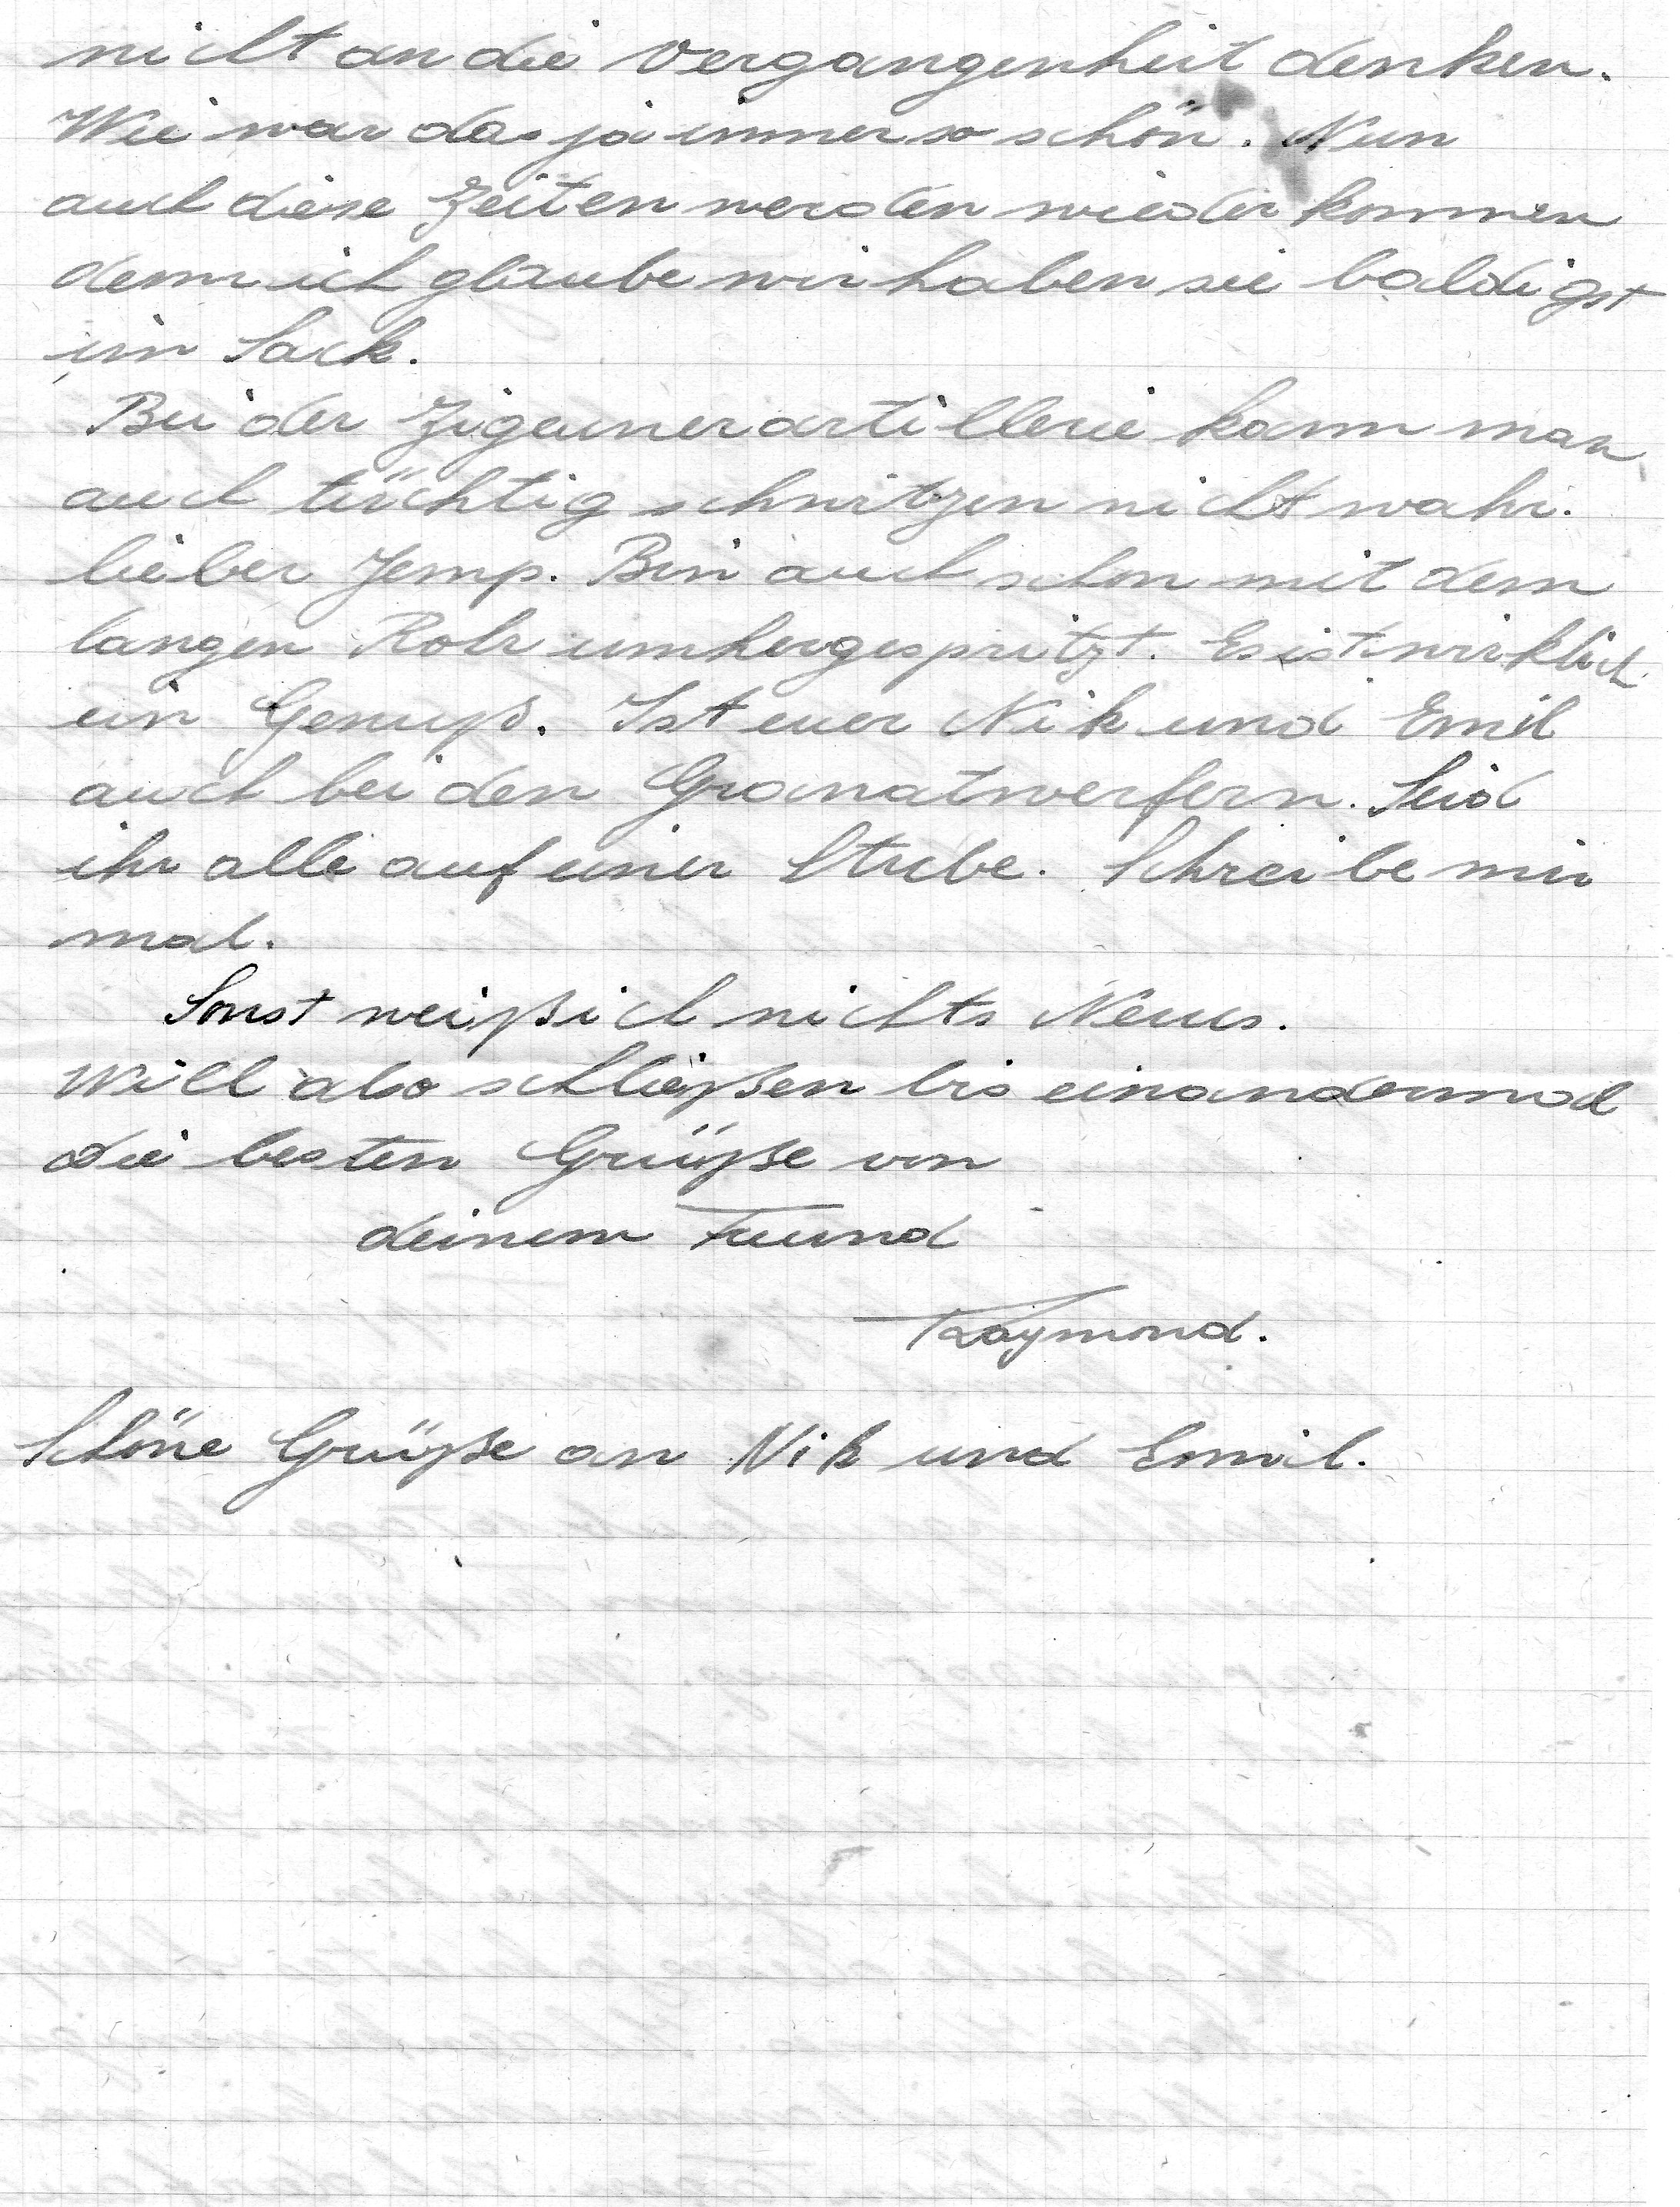 nicht an die Vergangenheit denken.
Wie war das ja immer so schön. Nun
auch diese Zeiten werden wieder kommen
denn ich glaube wir haben sie baldigst
im Sack.
Bei der Zigeunerartillerie kann man
auch tüchtig schwitzen nicht wahr.
lieber Jemp. Bin auch schon mit dem
langen Rohr umhergespritzt. Es ist wirklich
ein Genuß. Ist euer Nik und Emil
auch bei den Granatwerfern. Seid
ihr alle auf einer Stube. Schreibe mir
mal.
Sonst weiß ich nichts Neues.
Will also schließen bis einandermal
die besten Grüße von
deinem Freund
Raymond.
Schöne Grüße an Nik und Emil.